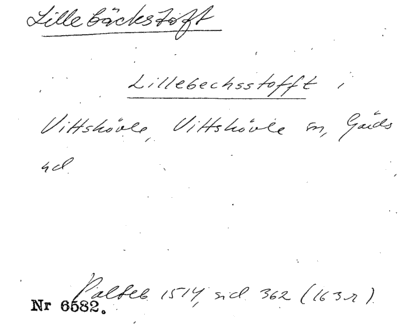 Lillebäckstoft
Lillebechsstofft i
Vittskövle, Vittskövle sn, Gärds
hd
Palteb 1514, sid 362 (163r)
Nr 6582.